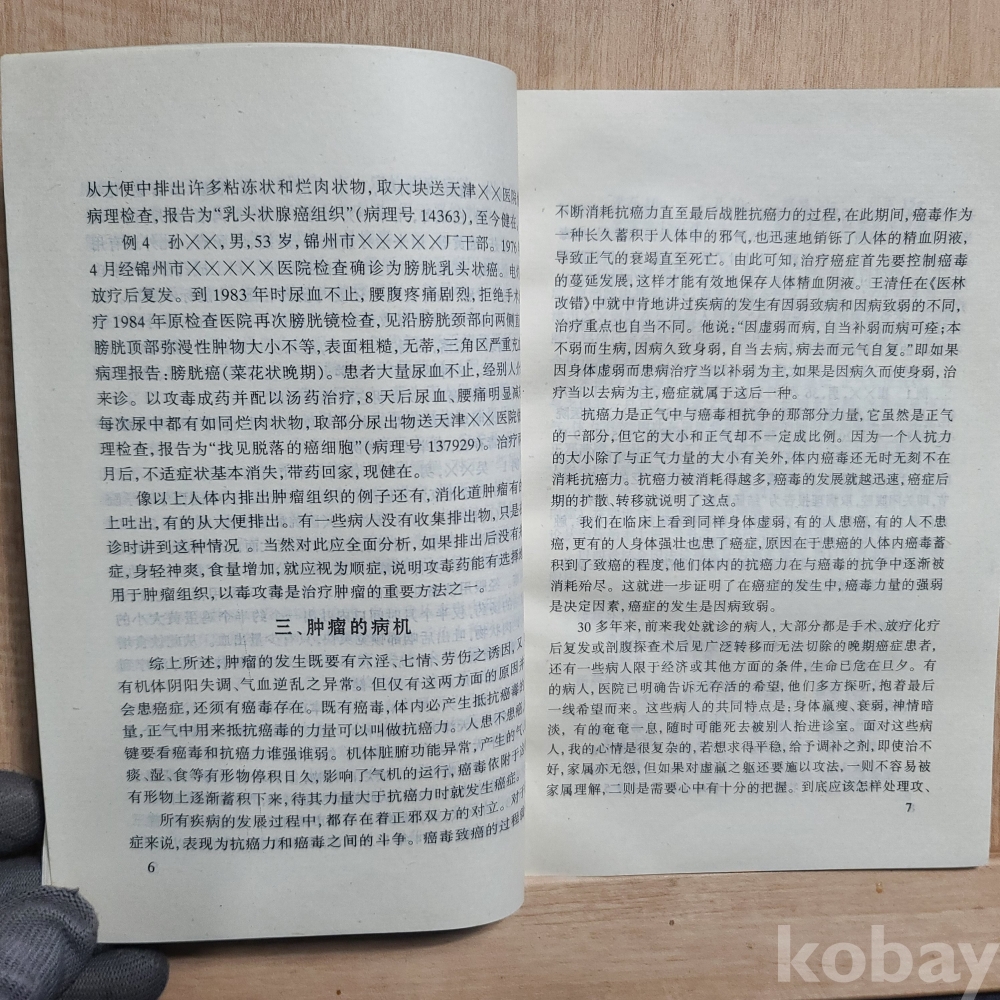 从大便中排出许多粘冻状和烂肉状物，取大块送天津××医院
病理检查，报告为“乳头状腺癌组织”(病理号 14363)，至今健在
例 4 孙××，男，53 岁，锦州市×××××厂干部。1976
4 月经锦州市×××××医院检查确诊为膀胱乳头状癌。电
放疗后复发。到 1983 年时尿血不止，腰腹疼痛剧烈，拒绝手术
疗 1984 年原检查医院再次膀胱镜检查，见沿膀胱颈部向两侧
膀胱顶部弥漫性肿物大小不等，表面粗糙，无蒂，三角区严重充
病理报告：膀胱癌(菜花状晚期)。患者大量尿血不止，经别人
来诊。以攻毒成药并配以汤药治疗，8 天后尿血、腰痛明显减
每次尿中都有如同烂肉状物，取部分尿出物送天津××医院
理检查，报告为“找见脱落的癌细胞”(病理号 137929)。治疗
月后，不适症状基本消失，带药回家，现健在。
像以上人体内排出肿瘤组织的例子还有，消化道肿瘤有的
上吐出，有的从大便排出。有一些病人没有收集排出物，只是
诊时讲到这种情况。当然对此应全面分析，如果排出后没有
症，身轻神爽，食量增加，就应视为顺症，说明攻毒药能有选择
用于肿瘤组织，以毒攻毒是治疗肿瘤的重要方法之一。
三、肿瘤的病机
综上所述，肿瘤的发生既要有六淫、七情、劳伤之诱因，又
有机体阴阳失调、气血逆乱之异常。但仅有这两方面的原因
会患癌症，还须有癌毒存在。既有癌毒，体内必产生抵抗癌毒的
量，正气中用来抵抗癌毒的力量可以叫做抗癌力。人患不患癌
键要看癌毒和抗癌力谁强谁弱。机体脏腑功能异常，产生的气
痰、湿、食等有形物停积日久，影响了气机的运行，癌毒依附于
有形物上逐渐蓄积下来，待其力量大于抗癌力时就发生癌症。
所有疾病的发展过程中，都存在着正邪双方的对立。对于
症来说，表现为抗癌力和癌毒之间的斗争。癌毒致癌的过程
6
不断消耗抗癌力直至最后战胜抗癌力的过程，在此期间，癌毒作为
一种长久蓄积于人体中的邪气，也迅速地销铄了人体的精血阴液，
导致正气的衰竭直至死亡。由此可知，治疗癌症首先要控制癌毒
的蔓延发展，这样才能有效地保存人体精血阴液。王清任在《医林
改错》中就中肯地讲过疾病的发生有因弱致病和因病致弱的不同，
治疗重点也自当不同。他说：“因虚弱而病，自当补弱而病可痊；本
不弱而生病，因病久致身弱，自当去病，病去而元气自复。”即如果
因身体虚弱而患病治疗当以补弱为主，如果是因病久而使身弱，治
疗当以去病为主，癌症就属于这后一种。
抗癌力是正气中与癌毒相抗争的那部分力量，它虽然是正气
的一部分，但它的大小和正气却不一定成比例。因为一个人抗力
的大小除了与正气力量的大小有关外，体内癌毒还无时无刻不在
消耗抗癌力。抗癌力被消耗得越多，癌毒的发展就越迅速，癌症后
期的扩散、转移就说明了这点。
我们在临床上看到同样身体虚弱，有的人患癌，有的人不患
癌，更有的人身体强壮也患了癌症，原因在于患癌的人体内癌毒蓄
积到了致癌的程度，他们体内的抗癌力在与癌毒的抗争中逐渐被
消耗殆尽。这就进一步证明了在癌症的发生中，癌毒力量的强弱
是决定因素，癌症的发生是因病致弱。
30 多年来，前来我处就诊的病人，大部分都是手术、放疗化疗
后复发或剖腹探查术后见广泛转移而无法切除的晚期癌症患者，
还有一些病人限于经济或其他方面的条件，生命已危在旦夕。有
的病人，医院已明确告诉无存活的希望，他们多方探听，抱着最后
一线希望而来。这些病人的共同特点是：身体羸瘦、衰弱，神情暗
淡，有的奄奄一息，随时可能死去被别人抬进诊室。面对这些病
人，我的心情是很复杂的，若想求得平稳，给予调补之剂，即使治不
好，家属亦无怨，但如果对虚羸之躯还要施以攻法，一则不容易被
家属理解，二则是需要心中有十分的把握。到底应该怎样处理攻、
7
kobay